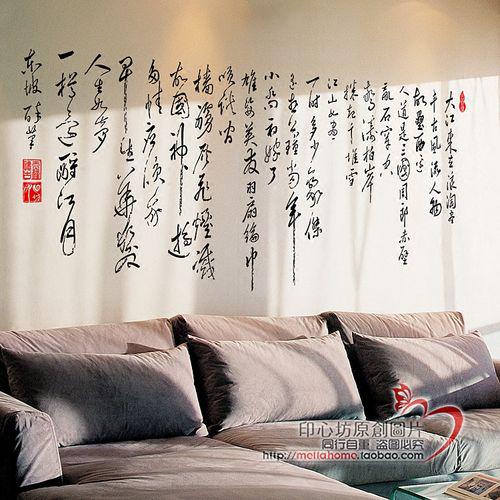 大江東去浪淘盡
千古風流人物
故壘西邊
人道是三國周郎赤壁
亂石穿空
驚濤拍岸
捲起千堆雪
江山如畫
一時多少豪傑
遙想公瑾當年
小喬初嫁了
雄姿英發羽扇綸巾
談笑間
檣櫓灰飛煙滅
故國神遊
多情應笑我
早生華髮
人生如夢
一樽還酹江月
東坡醉筆
印心坊原創圖片
同行自重 必究
http://mellahome.taobao.com